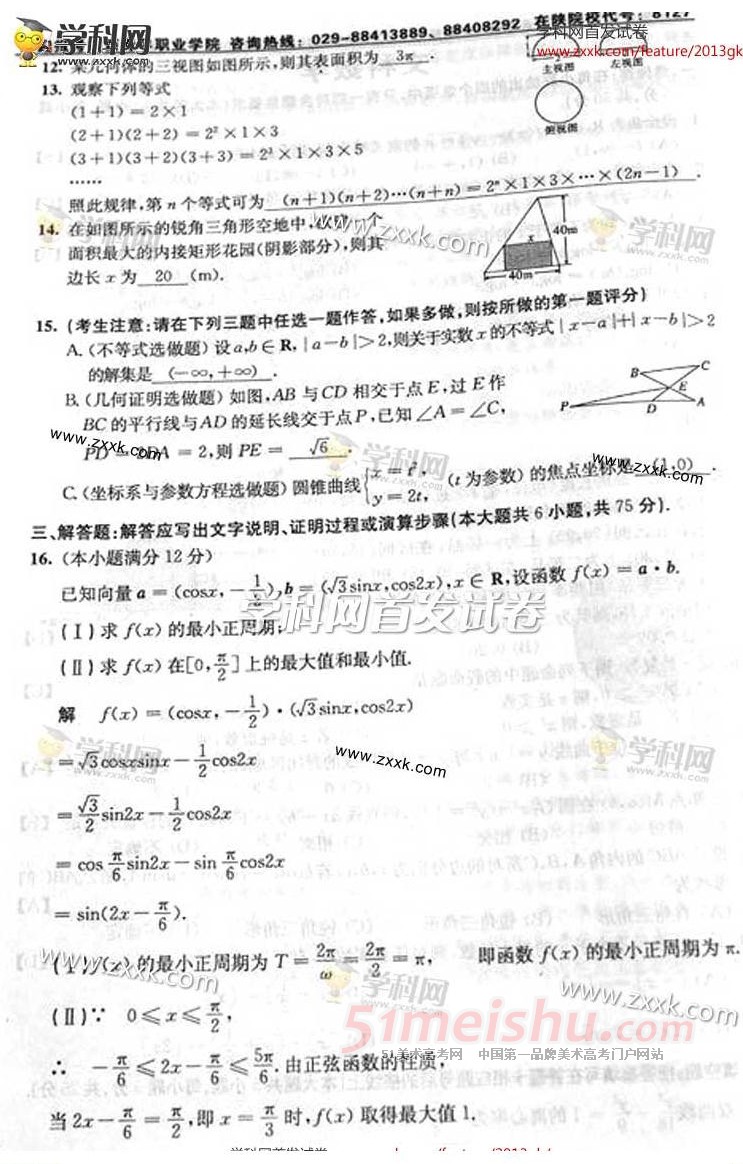 职业学院 咨询热线：029-88413889、88408292 在陕院校代号：8127
学科网首发试卷
www.zxxk.com/feature/2013gk
12. 某几何体的三视图如图所示,则其表面积为 3π .
主视图 左视图
13. 观察下列等式
(1+1)=2×1
(2+1)(2+2)=2²×1×3
(3+1)(3+2)(3+3)=2³×1×3×5
俯视图
……
照此规律,第 n 个等式可为 (n+1)(n+2)…(n+n)=2ⁿ×1×3×…×(2n-1) .
14. 在如图所示的锐角三角形空地中,欲建一个
面积最大的内接矩形花园(阴影部分),则其
边长 x 为 20 (m).
x 40m
40m
15. (考生注意:请在下列三题中任选一题作答,如果多做,则按所做的第一题评分)
A.(不等式选做题) 设 a,b∈R,|a-b|>2,则关于实数 x 的不等式|x-a|+|x-b|>2
的解集是 (-∞,+∞) .
B.(几何证明选做题) 如图,AB 与 CD 相交于点 E,过 E 作
BC 的平行线与 AD 的延长线交于点 P,已知 ∠A=∠C,
PD=2DA=2,则 PE= √6 .
B C E P D A
C.(坐标系与参数方程选做题) 圆锥曲线{x=t², y=2t, (t 为参数) 的焦点坐标是 (1,0) .
三、解答题:解答应写出文字说明、证明过程或演算步骤(本大题共 6 小题,共 75 分).
16. (本小题满分 12 分)
已知向量 a=(cosx,-1/2),b=(√3sinx,cos2x),x∈R,设函数 f(x)=a·b.
学科网首发试卷
(Ⅰ)求 f(x) 的最小正周期;
(Ⅱ)求 f(x) 在[0,π/2]上的最大值和最小值.
解 f(x)=(cosx,-1/2)·(√3sinx,cos2x)
=√3cosxsinx-1/2cos2x
=√3/2sin2x-1/2cos2x
=cosπ/6sin2x-sinπ/6cos2x
=sin(2x-π/6).
(Ⅰ) f(x) 的最小正周期为 T=2π/ω=2π/2=π, 即函数 f(x) 的最小正周期为 π.
(Ⅱ)∵ 0≤x≤π/2,
51meishu.com
51美术高考网 中国第一品牌美术高考门户网站
∴ -π/6≤2x-π/6≤5π/6.由正弦函数的性质,
当 2x-π/6=π/2,即 x=π/3 时,f(x) 取得最大值 1.
学科网
www.zxxk.com